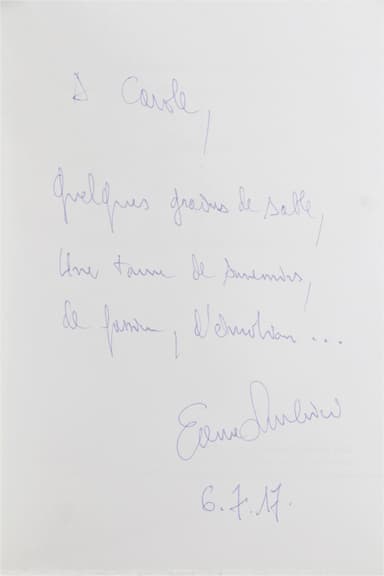 A Carole,
Quelques grains de sable,
Une tonne de souvenirs,
de passion, d'émotion ...
6.7.17.